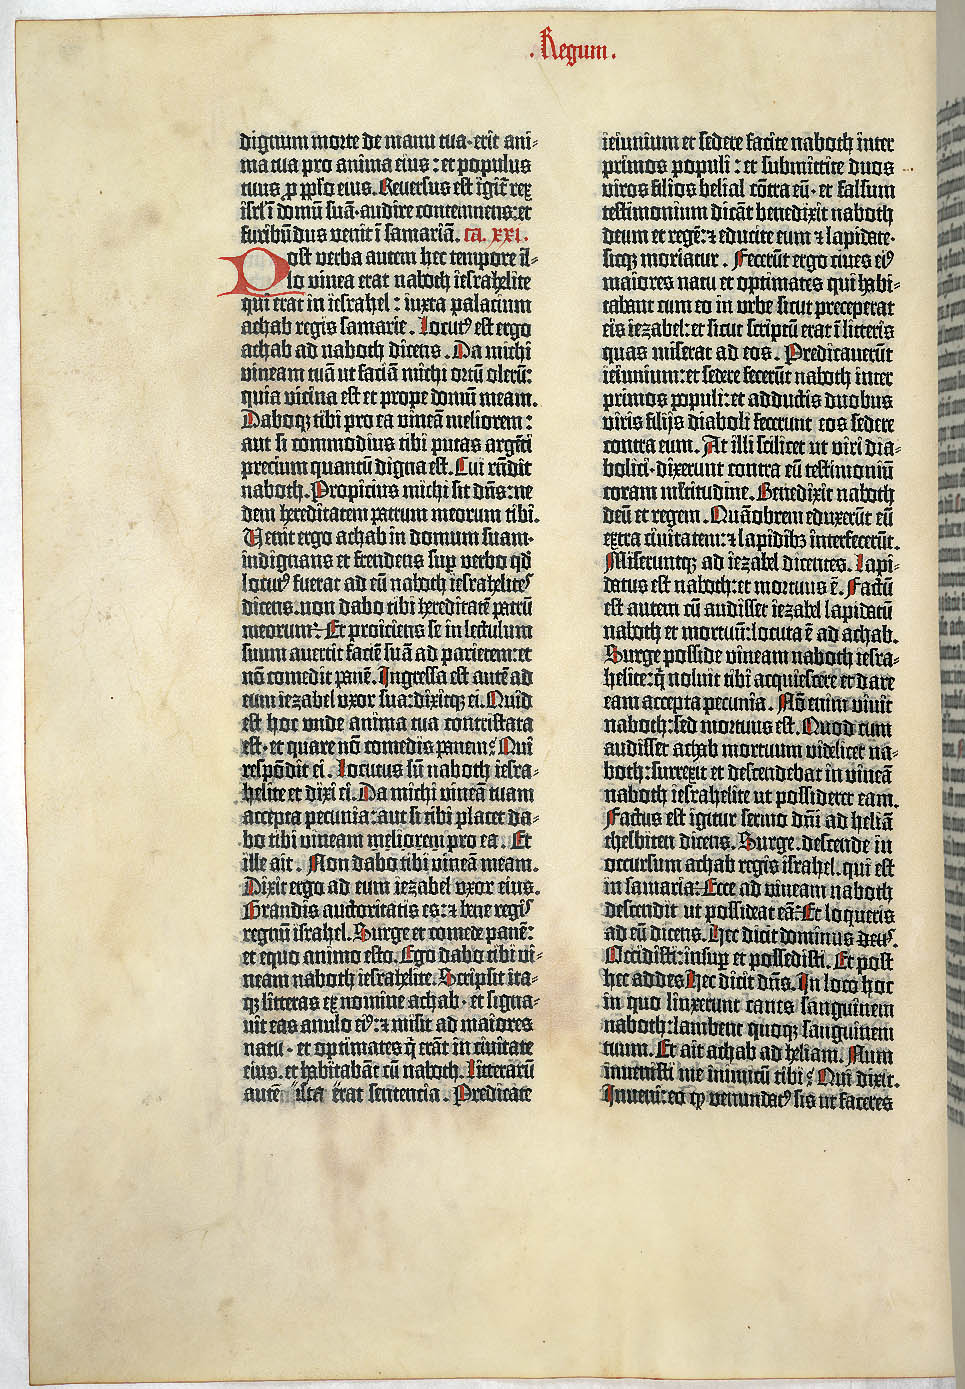 . Regum .
dignum morte de manu tua·erit ani-
ma tua pro anima eius : et populus
tuus ꝓ pplo eius. Reuersus est igit̃ rex
isrl̃ ĩ domũ suã·audire contemnens:et
furibũdus venit ĩ samariã. ca. xxi.
Post verba autem hec tempore il-
lo vinea erat naboth iesrahelite
qui erat in iesrahel : iuxta palacium
achab regis samarie. Locutꝰ est ergo
achab ad naboth dicens. Da michi
vineam tuã ut faciã michi ortũ olerũ:
quia vicina est et prope domũ meam.
Daboqꝫ tibi pro ea vineã meliorem :
aut si commodius tibi putas argẽti
precium quantũ digna est. Cui rñdit
naboth. Propicius michi sit dñs:ne
dem hereditatem patrum meorum tibi.
Uenit ergo achab in domum suam·
indignans et frendens suꝑ verbo qd̃
locutꝰ fuerat ad eũ naboth iesrahelites
dicens. non dabo tibi hereditatẽ patrũ
meorum: Et proiciens se in lectulum
suum auertit faciẽ suã ad parietem:et
nõ comedit panẽ. Ingressa est autẽ ad
eum iezabel vxor sua: dixitqꝫ ei. Quid
est hoc vnde anima tua contristata
est· et quare nõ comedis panem: Qui
respõdit ei. Locutus sũ naboth iesra-
helite et dixi ei. Da michi vineã tuam
accepta pecunia:aut si tibi placet da-
bo tibi vineam meliorem pro ea. Et
ille ait. Non dabo tibi vineã meam.
Dixit ergo ad eum iezabel vxor eius.
Grandis auctoritatis es:⁊ bene regis
regnũ israhel. Surge et comede panẽ:
et equo animo esto. Ego dabo tibi vi-
neam naboth iesrahelite. Scripsit ita-
qꝫ litteras ex nomine achab · et signa-
uit eas anulo eiꝰ:⁊ misit ad maiores
natu · et optimates q̃ erãt in ciuitate
eius. et habitabãt cũ naboth. Litterarũ
autẽ ista erat sentencia. Predicate
ieiunium et sedere facite naboth inter
primos populi : et submittite duos
viros filios belial cõtra eũ · et falsum
testimonium dicãt benedixit naboth
deum et regẽ:⁊ educite eum ⁊ lapidate·
sicqꝫ moriatur . Fecerũt ergo ciues eiꝰ
maiores natu et optimates qui habi-
tabant cum eo in vrbe sicut preceperat
eis iezabel: et sicut scriptũ erat ĩ litteris
quas miserat ad eos. Predicauerũt
ieiunium:et sedere fecerũt naboth inter
primos populi:et adductis duobus
viris filijs diaboli fecerunt eos sedere
contra eum. At illi scilicet ut viri dia-
bolici·dixerunt contra eũ testimoniũ
coram mltitudine. Benedixit naboth
deũ et regem. Quãobrem eduxerũt eũ
extra ciuitatem:⁊ lapidibꝫ interfecerũt.
Miseruntqꝫ ad iezabel dicentes. Lapi-
datus est naboth:et mortuus ẽ. Factũ
est autem cũ audisset iezabel lapidatũ
naboth et mortuũ:locuta ẽ ad achab.
Surge posside vineam naboth iesra-
helite:q̃ noluit tibi acquiescere et dare
eam accepta pecunia. Nõ enim viuit
naboth:sed mortuus est. Quod cum
audisset achab mortuum videlicet na-
both:surrexit et descendebat in vineã
naboth iesrahelite ut possideret eam.
Factus est igitur sermo dñi ad heliã
thesbiten dicens. Surge. descende in
occursum achab regis israhel. qui est
in samaria: Ecce ad vineam naboth
descendit ut possideat eã: Et loqueris
ad eũ dicens. Hec dicit dominus deus.
Occidisti:insuꝑ et possedisti. Et post
hec addes Hec dicit dñs. In loco hoc
in quo linxerunt canes sanguinem
naboth:lambent quoqꝫ sanguinem
tuum. Et ait achab ad heliam. Num
inuenisti me inimicũ tibi: Qui dixit.
Inueni: eo ꝙ venundatꝰ sis ut faceres